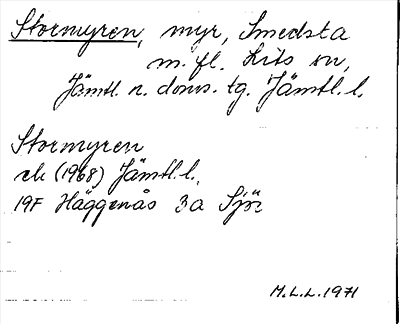 Stormyren, myr, Smedsta
m. fl. Lits sn,
Jämtl. n. doms. tg. Jämtl. l.
Stormyren
ek (1968) Jämtl. l.
19F Häggenås 3a Sjö
M.L.L. 1971